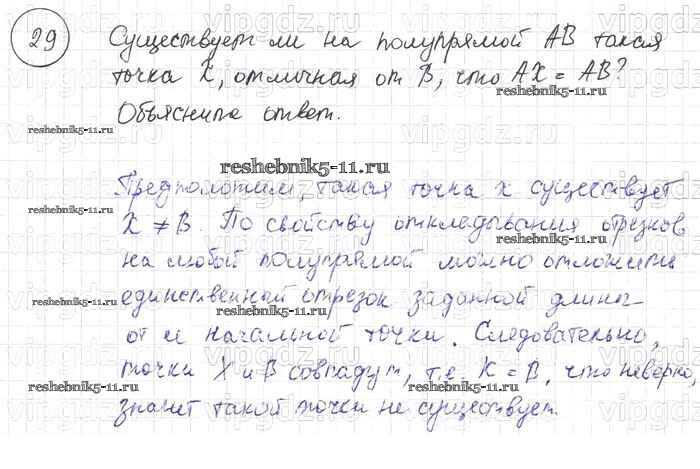 29
Существует ли на полупрямой AB такая
точка X, отличная от B, что AX = AB?
Объяснить ответ.
reshebnik5-11.ru
reshebnik5-11.ru
reshebnik5-11.ru
Предположим, такая точка X существует
X ≠ B. По свойству откладывания отрезков
reshebnik5-11.ru
reshebnik5-11.ru
на любой полупрямой можно отложить
единственный отрезок заданной длины
reshebnik5-11.ru
reshebnik5-11.ru
от её начальной точки. Следовательно,
точки X и B совпадут, т.е. X = B, что неверно,
reshebnik5-11.ru
reshebnik5-11.ru
reshebnik5-11.ru
значит такой точки не существует.
vipgdz.ru